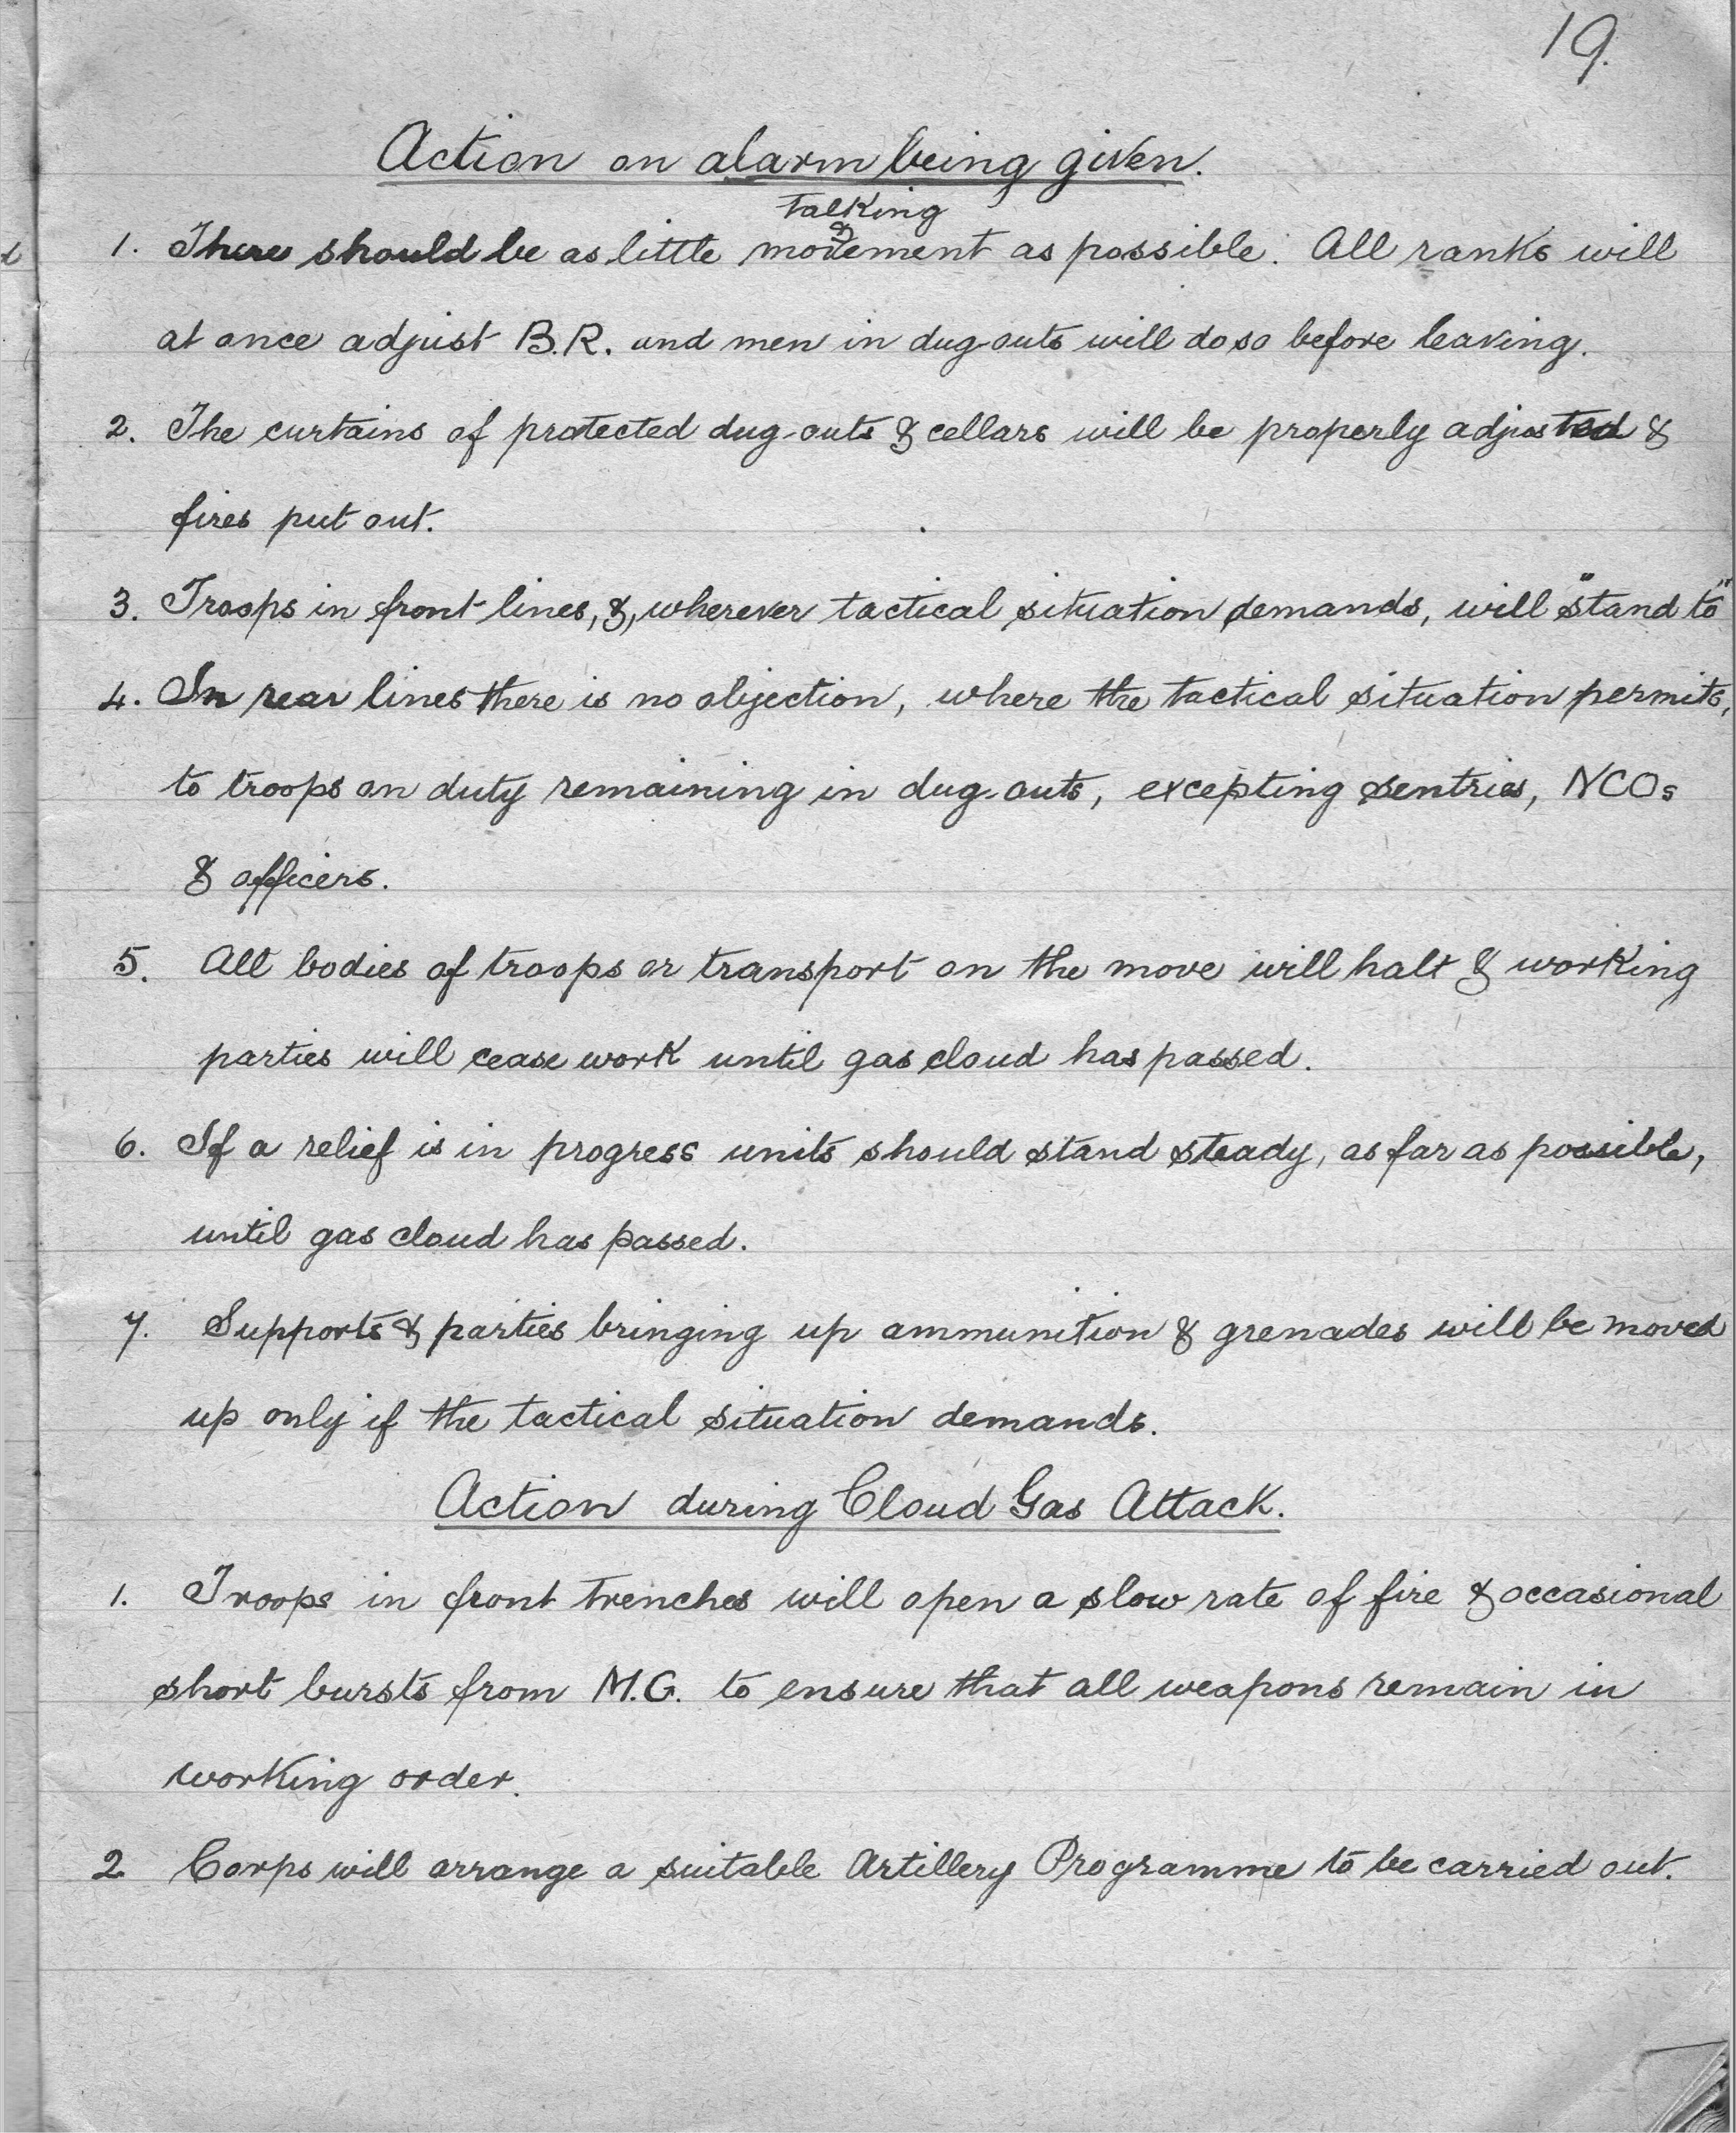 19.
Action on alarm being given.
Talking &
1. There should be as little movement as possible. All ranks will
at once adjust B.R. and men in dug-outs will do so before leaving.
2. The curtains of protected dug-outs & cellars will be properly adjusted &
fires put out.
3. Troops in front lines, &, wherever tactical situation demands, will "stand to"
4. In rear lines there is no objection, where the tactical situation permits,
to troops on duty remaining in dug-outs, excepting sentries, NCOs
& officers.
5. All bodies of troops or transport on the move will halt & working
parties will cease work until gas cloud has passed.
6. If a relief is in progress units should stand steady, as far as possible,
until gas cloud has passed.
7. Supports & parties bringing up ammunition & grenades will be moved
up only if the tactical situation demands.
Action during Cloud Gas Attack.
1. Troops in front trenches will open a slow rate of fire & occasional
short bursts from M.G. to ensure that all weapons remain in
working order.
2 Corps will arrange a suitable Artillery Programme to be carried out.